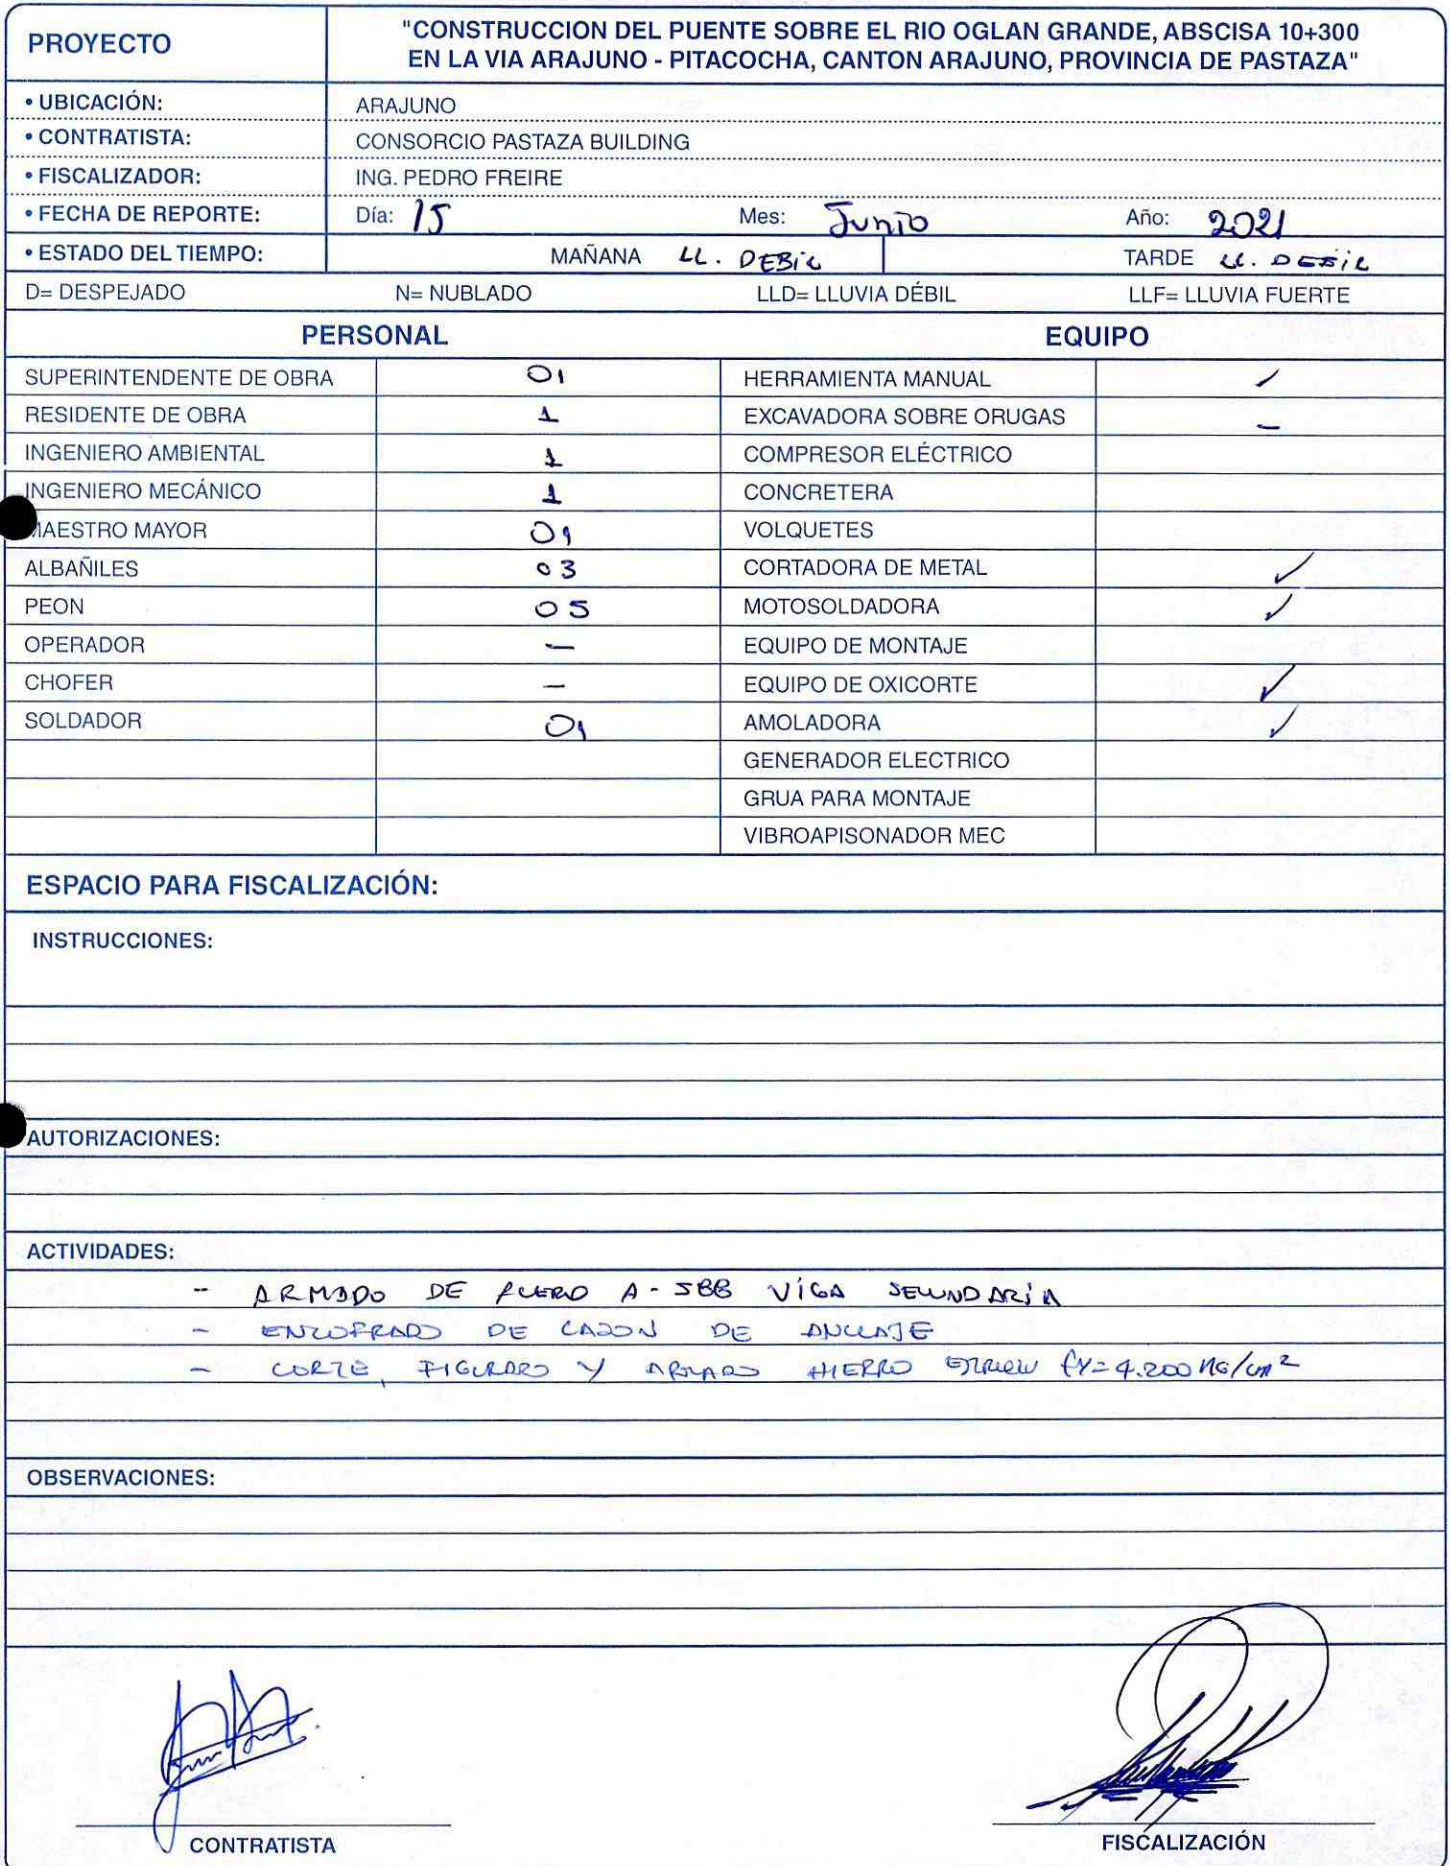 PROYECTO
"CONSTRUCCION DEL PUENTE SOBRE EL RIO OGLAN GRANDE, ABSCISA 10+300
EN LA VIA ARAJUNO - PITACOCHA, CANTON ARAJUNO, PROVINCIA DE PASTAZA"
• UBICACIÓN: ARAJUNO
• CONTRATISTA: CONSORCIO PASTAZA BUILDING
• FISCALIZADOR: ING. PEDRO FREIRE
• FECHA DE REPORTE: Día: 15 Mes: Junio Año: 2021
• ESTADO DEL TIEMPO: MAÑANA LL. DEBIL TARDE LL. DEBIL
D= DESPEJADO N= NUBLADO LLD= LLUVIA DÉBIL LLF= LLUVIA FUERTE
PERSONAL EQUIPO
SUPERINTENDENTE DE OBRA 01 HERRAMIENTA MANUAL ✓
RESIDENTE DE OBRA 1 EXCAVADORA SOBRE ORUGAS –
INGENIERO AMBIENTAL 1 COMPRESOR ELÉCTRICO
INGENIERO MECÁNICO 1 CONCRETERA
MAESTRO MAYOR 01 VOLQUETES
ALBAÑILES 03 CORTADORA DE METAL ✓
PEON 05 MOTOSOLDADORA ✓
OPERADOR – EQUIPO DE MONTAJE
CHOFER – EQUIPO DE OXICORTE ✓
SOLDADOR 01 AMOLADORA ✓
GENERADOR ELECTRICO
GRUA PARA MONTAJE
VIBROAPISONADOR MEC
ESPACIO PARA FISCALIZACIÓN:
INSTRUCCIONES:
AUTORIZACIONES:
ACTIVIDADES:
- ARMADO DE A-588 VIGA SECUNDARIA
- ENCOFRADO DE CAJON DE ANCLAJE
- CORTE, FIGURADO Y ARMADO HIERRO fy=4.200 KG/cm²
OBSERVACIONES:
CONTRATISTA FISCALIZACIÓN